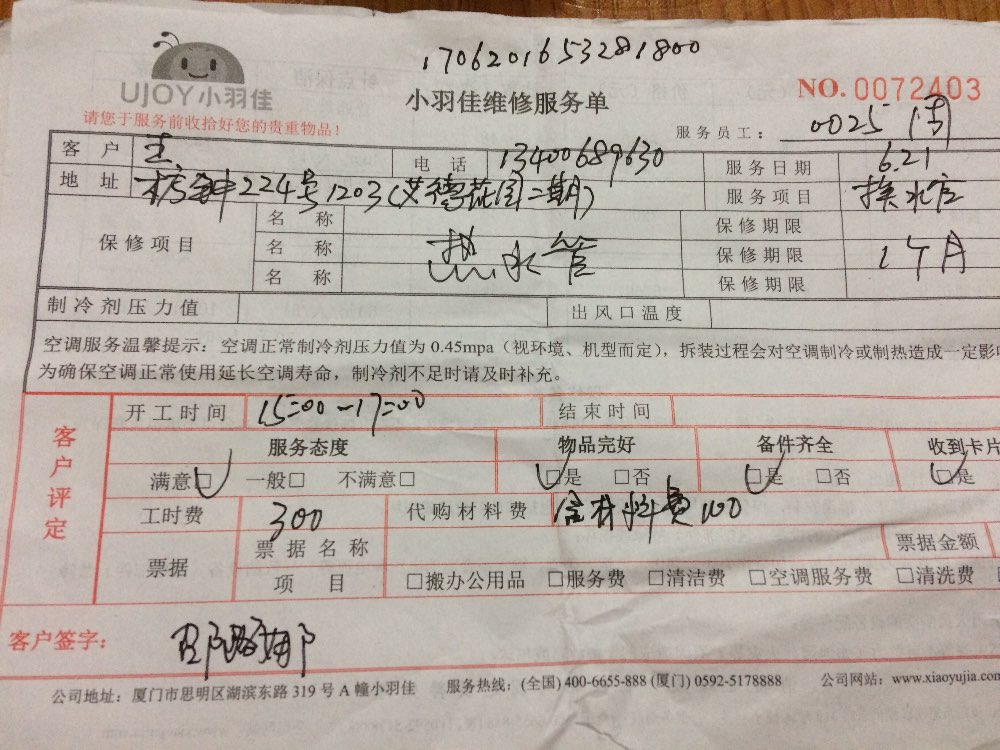 1706201653281800
UJOY小羽佳
小羽佳维修服务单
NO. 0072403
请您于服务前收拾好您的贵重物品！
服务员工： 0025
客 户 王 电 话 13400689630 服务日期 6.21
地 址 224号1203(艾德花园二期) 服务项目 换水管
保修项目
名 称 保修期限
名 称 热水管 保修期限 1个月
名 称 保修期限
制冷剂压力值 出风口温度
空调服务温馨提示：空调正常制冷剂压力值为 0.45mpa（视环境、机型而定），拆装过程会对空调制冷或制热造成一定影响
为确保空调正常使用延长空调寿命，制冷剂不足时请及时补充。
客户评定
开工时间 15=00-17=00 结束时间
服务态度 物品完好 备件齐全 收到卡片
满意□ 一般□ 不满意□ □是 □否 □是 □否 □是
工时费 300 代购材料费 含材料费100
票据 票据名称 票据金额
项 目 □搬办公用品 □服务费 □清洁费 □空调服务费 □清洗费
客户签字：
公司地址：厦门市思明区湖滨东路 319 号 A 幢小羽佳 服务热线：(全国) 400-6655-888 (厦门) 0592-5178888 公司网站：www.xiaoyujia.com